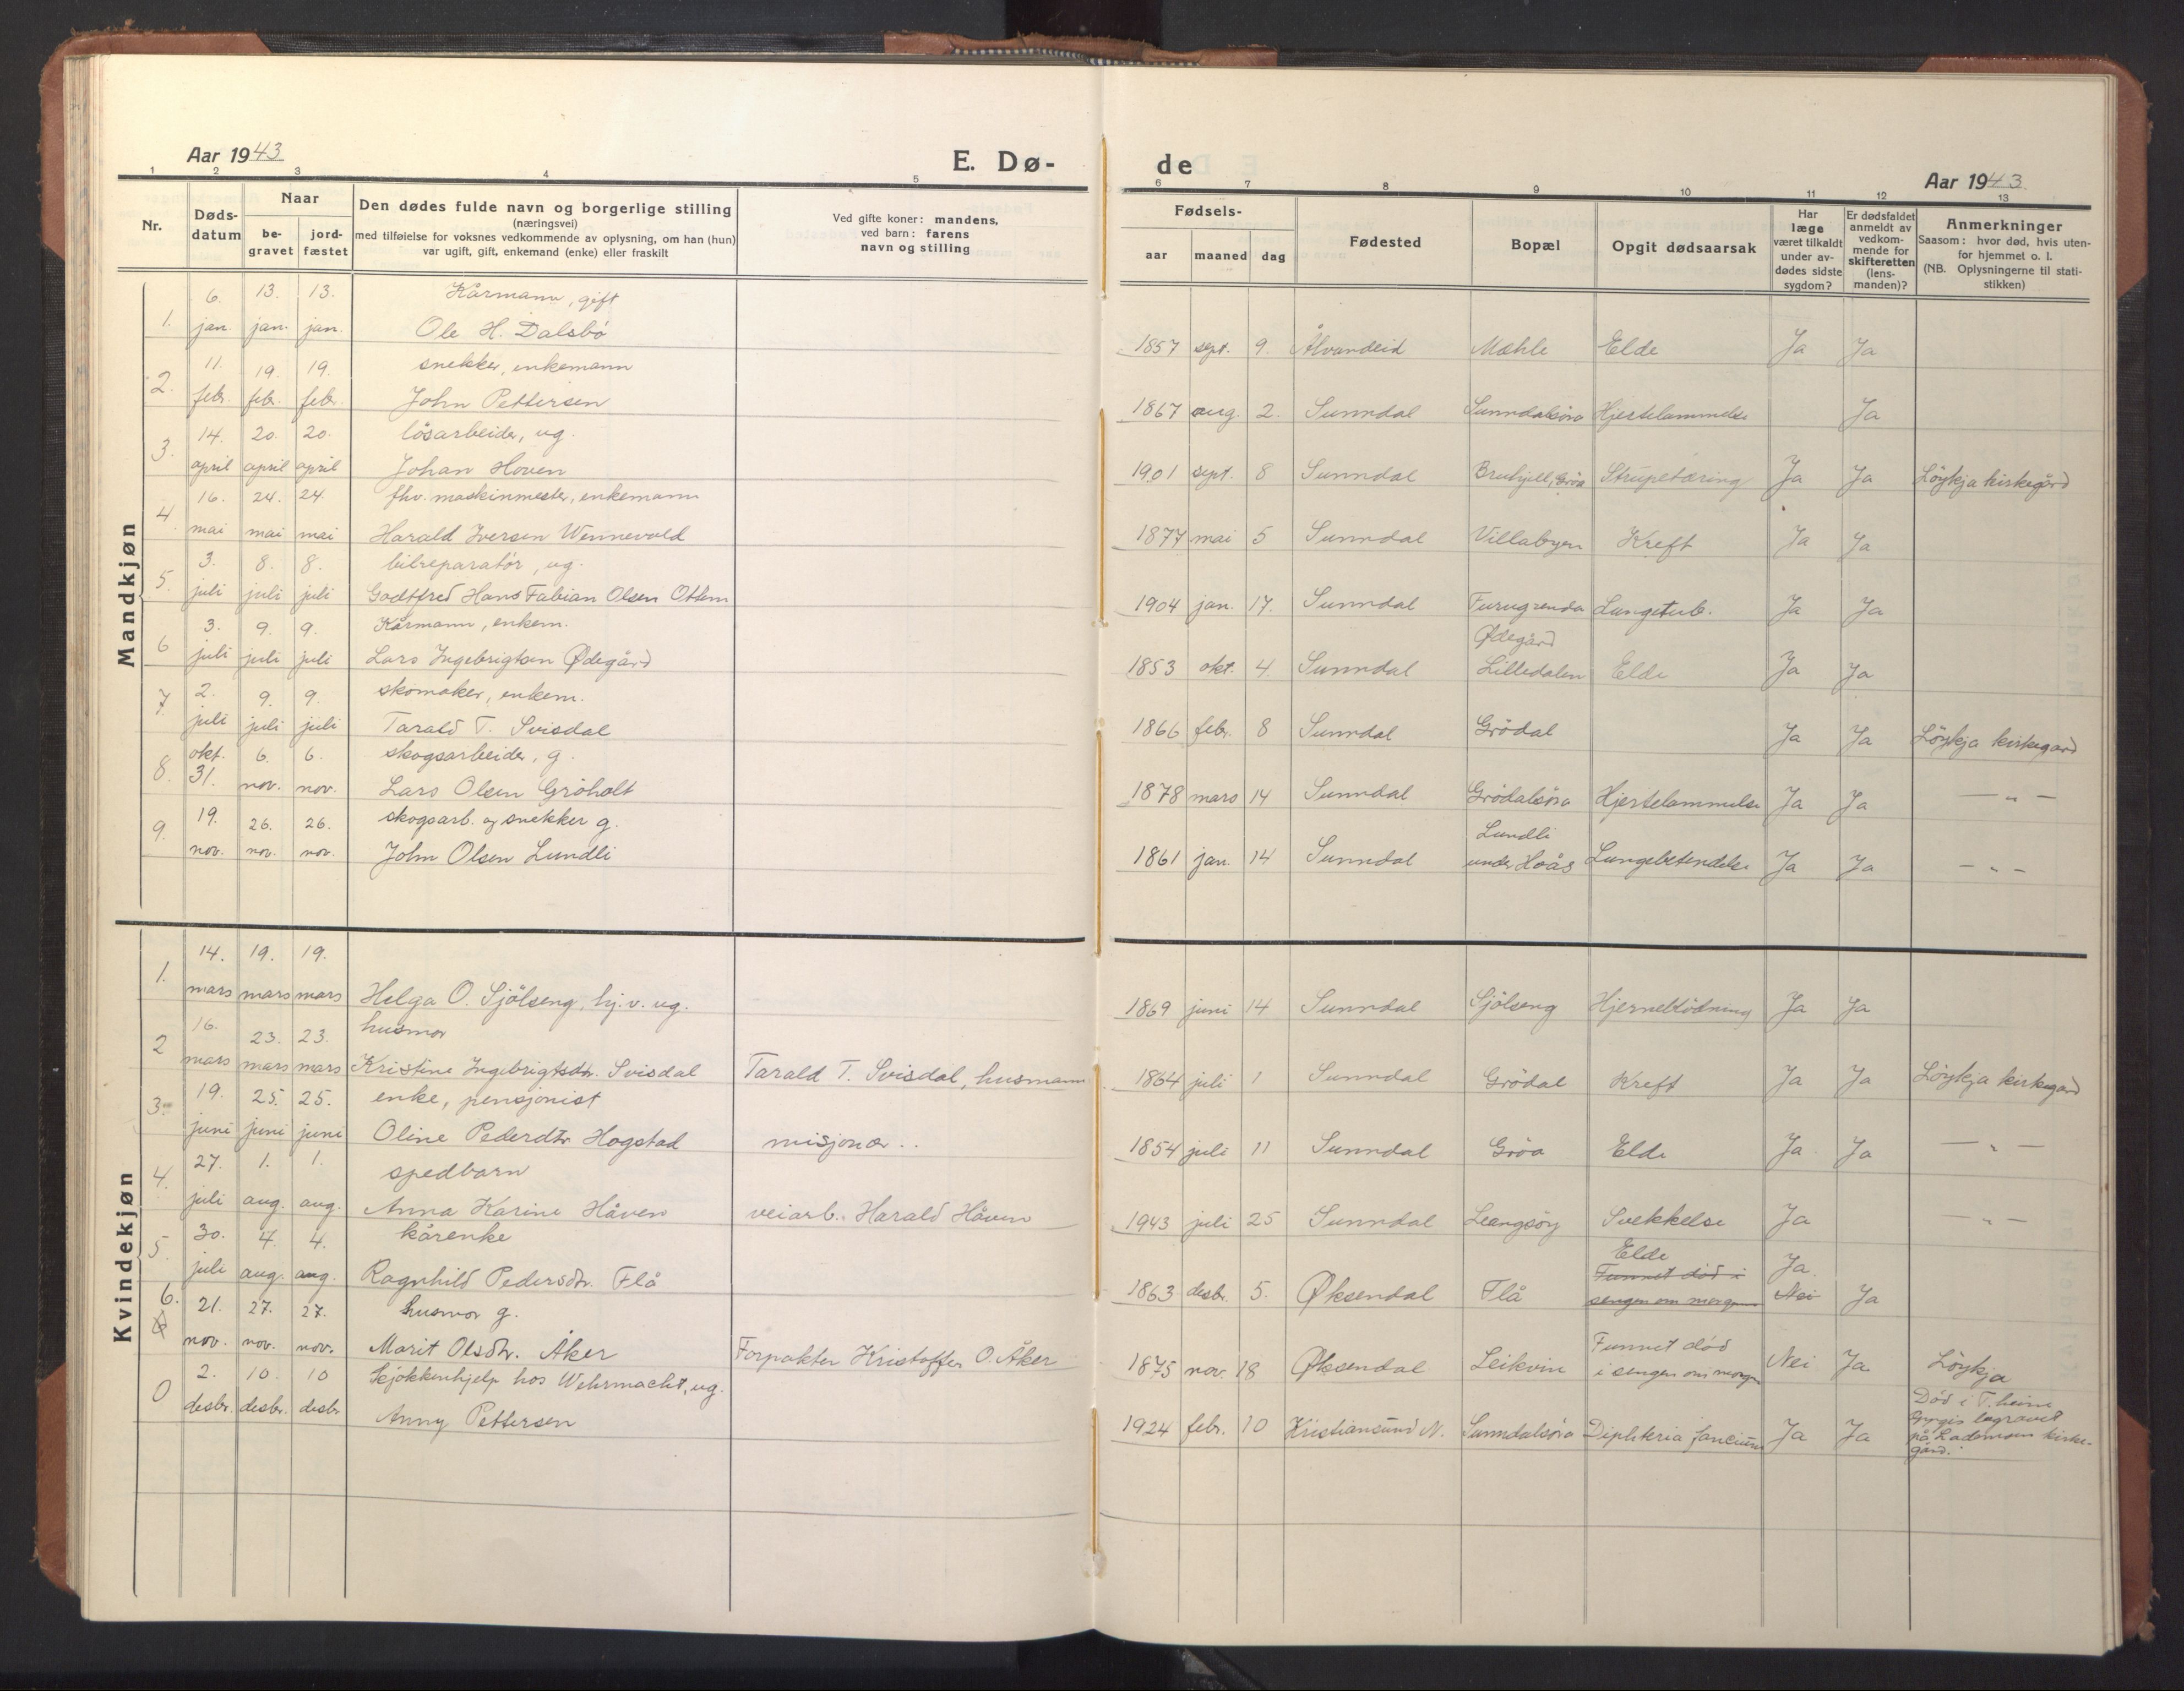 Aar 1943
E. Dø-
1 2 3 4 5
Nr.
Døds-
datum
Naar
be-
gravet
jord-
fæstet
Den dødes fulde navn og borgerlige stilling
(næringsvei)
med tilføielse for voksnes vedkommende av oplysning, om han (hun)
var ugift, gift, enkemand (enke) eller fraskilt
Ved gifte koner: mandens,
ved barn: farens
navn og stilling
Mandkjøn
6. 13. 13. Kårmann, gift
1. jan. jan. jan. Ole H. Dalsbö
11. 19. 19. snekker, enkemann
2. febr. febr. febr. John Pettersen
14. 20. 20. lösarbeider, ug.
3. april april april Johan Hoven
16. 24. 24. fhv. maskinmester, enkemann
4. mai mai mai Harald Iversen Wennevold
3. 8. 8. bilreparatör, ug.
5. juli juli juli Godtfred Hans Fabian Olsen Ottem
3. 9. 9. Kårmann, enkem.
6 juli juli juli Lars Ingebrigtsen Ødegård
2. 9. 9. skomaker, enkem.
7. juli juli juli Tarald T. Svisdal
okt. 6. 6. skogsarbeider, g.
8. 31. nov. nov. Lars Olsen Gröholt
19. 26. 26. skogsarb. og snekker g.
9. nov. nov. nov. John Olsen Lundli
Kvindekjøn
14. 19. 19.
1. mars mars mars Helga O. Sjölseng, hj.v. ug.
16. 23. 23. husmor
2 mars mars mars Kristine Ingebrigtsdtr. Svisdal Tarald T. Svisdal, husmann
19. 25. 25. enke, pensjonist
3. juni juni juni Oline Pederdtr Hogstad misjonær..
27. 1. 1. spedbarn
4. juli aug. aug. Anna Karine Håven veiarb. Harald Håven
30. 4. 4. kårenke
5. juli aug. aug. Ragnhild Pedersdtr. Flå
6. 21. 27. 27. husmor g.
nov. nov. nov. Marit Olsdtr. Åker Forpakter Kristoffer O. Åker
2. 10. 10 Kjökkenhjelp hos Wehrmacht, ug.
0 desbr. desbr. desbr Anny Pettersen
de
Aar 1943
6 7 8 9 10 11 12 13
Fødsels-
aar maaned dag
Fødested
Bopæl
Opgit dødsaarsak
Har
læge
været tilkaldt
under av-
dødes sidste
sygdom?
Er dødsfaldet
anmeldt av
vedkom-
mende for
skifteretten
(lens-
manden)?
Anmerkninger
Saasom: hvor død, hvis uten-
for hjemmet o. l.
(NB. Oplysningerne til stati-
stikken)
1857 sept. 9. Ålvundeid Mæhle Elde Ja Ja
1867 aug. 2. Sunndal Sunndalsöra Hjertelammelse Ja
1901 sept. 8 Sunndal Bruhjell, Gröa Strupetæring Ja Ja Löykja kirkegård
1877 mai 5 Sunndal Villabyen Kreft Ja Ja
1904 jan. 17. Sunndal Furugrenda Lungetub. Ja Ja
Ødegård
1853 okt. 4. Sunndal Lilledalen Elde Ja Ja
1866 febr. 8 Sunndal Grödal Ja Ja Löykja kirkegard
1878 mars 14 Sunndal Grödalsöra Hjertelammelse Ja Ja — „ —
Lundli
1861 jan. 14 Sunndal under Hoås Lungebetendelse Ja Ja — „ —
1869 juni 14 Sunndal Sjölseng Hjerneblödning Ja Ja
1864 juli 1 Sunndal Grödal Kreft Ja Ja Löykja kirkegard
1854 juli 11 Sunndal Gröa Elde Ja Ja — „ —
1943 juli 25 Sunndal Leangsöy Svekkelse Ja — „ —
Elde
Funnet död i Ja.
1863 desbr. 5. Øksendal Flå sengen om morgenen Nei Ja
Funnet död
1875 nov. 18 Øksendal Leikvin i sengen om morgen Nei Ja Löykja
Död i T.heim
1924 febr. 10 Kristiansund N. Sunndalsöra Diphteria faucium Ja Ja begravet
på Lademoen kirke-
gård.